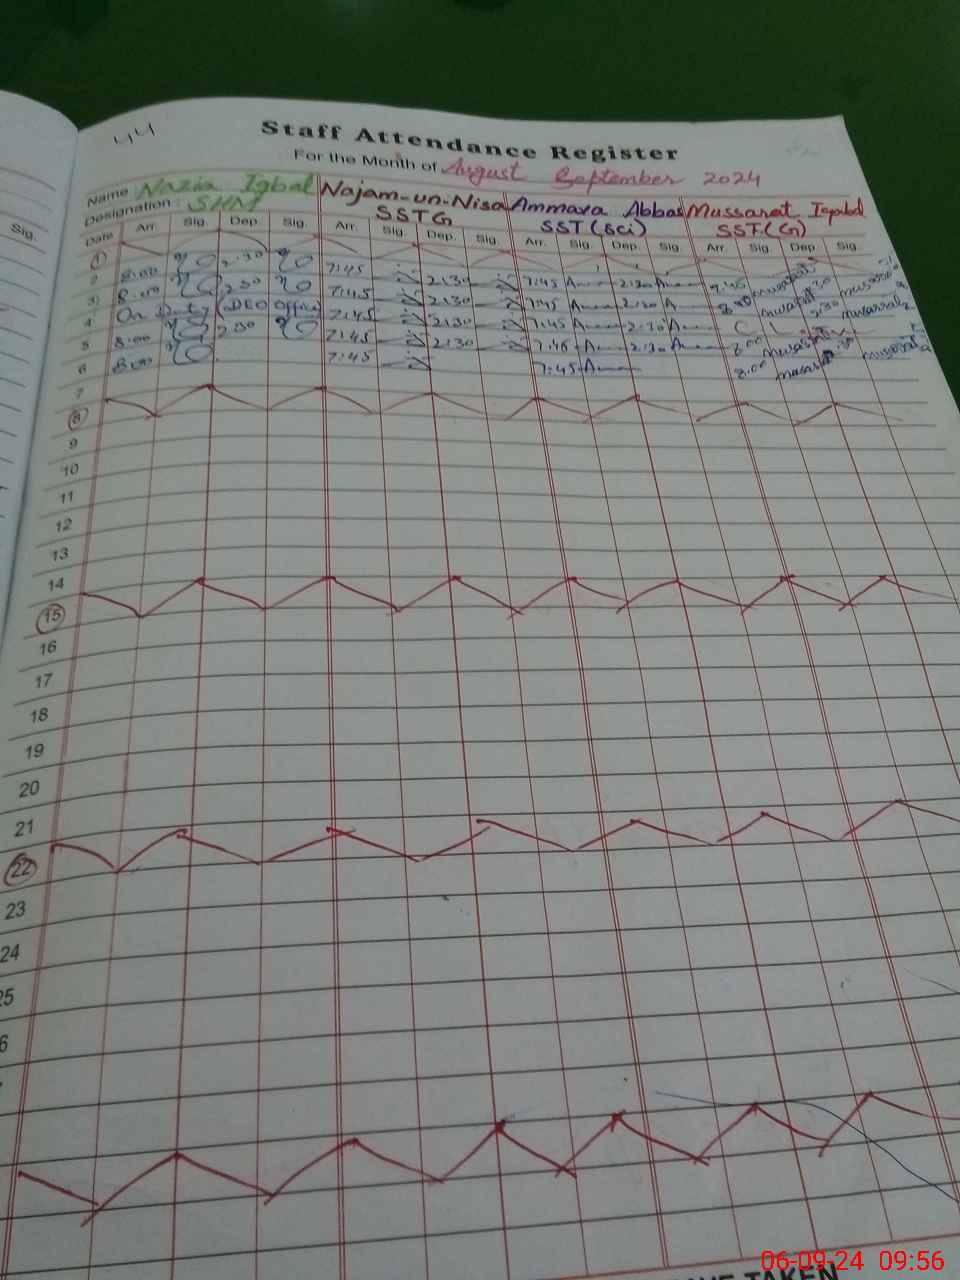 44
Staff Attendance Register
For the Month of August September 2024
Name Nazia Iqbal Najam-un-Nisa Ammara Abbas Mussarat Iqbal
Designation: SHM SSTG SST (Sci) SST (G)
Sig.
Date Arr. Sig. Dep. Sig. Arr. Sig. Dep. Sig. Arr. Sig. Dep. Sig. Arr. Sig. Dep. Sig.
1
2 8:00 2:30 7:45 2:30 7:45 2:30 7:45
3 8:00 2:30 7:45 2:30 7:45 2:30 8:00 2:30
4 On Duty (DEO Office) 7:45 2:30 7:45 2:30 C L
5 8:00 2:30 7:45 2:30 7:45 2:30 8:00
6 8:00 7:45 7:45 8:00
7
8
9
10
11
12
13
14
15
16
17
18
19
20
21
22
23
24
25
6
TAKEN
06-09-24 09:56